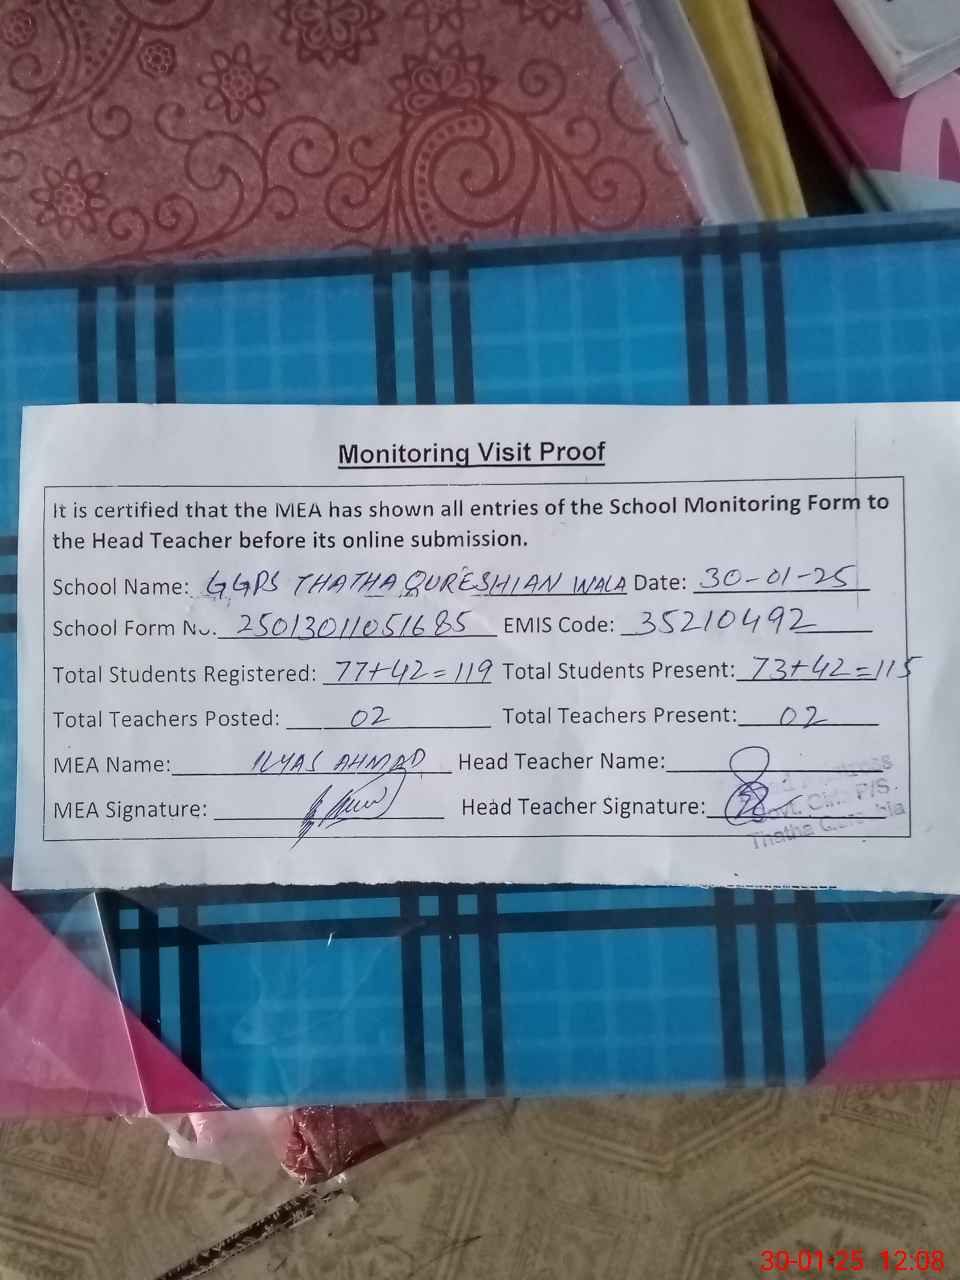 Monitoring Visit Proof
It is certified that the MEA has shown all entries of the School Monitoring Form to
the Head Teacher before its online submission.
School Name: GGPS THATHA QURESHIAN WALA Date: 30-01-25
School Form No. 25013011051685 EMIS Code: 35210492
Total Students Registered: 77+42=119 Total Students Present: 73+42=115
Total Teachers Posted: 02 Total Teachers Present: 02
MEA Name: ILYAS AHMAD Head Teacher Name:
MEA Signature: Head Teacher Signature:
Govt. P/S.
Thatha
30-01-25 12:08